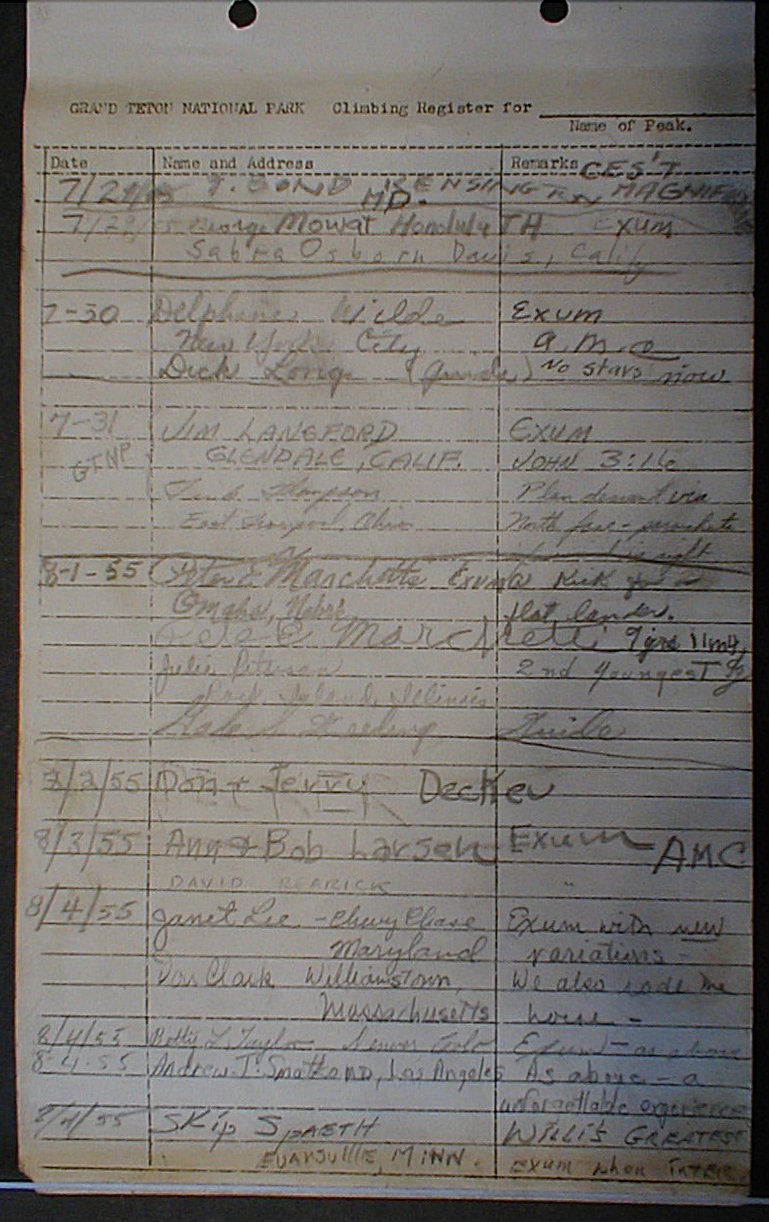 GRAND TETON NATIONAL PARK Climbing Register for
Name of Peak.
Date Name and Address Remarks
MD. KENSINGTON
George Mowat Honolulu TH Exum
Sabra Osborn Davis, Calif
7-30 Wilde Exum
New York City A.M.C
Dick Long (Guide) No stars now
7-31 JIM LANGFORD EXUM
GTNP GLENDALE, CALIF. JOHN 3:16
Thompson Plan descent via
East Liverpool, Ohio North face - parachute
8-1-55 Peter E Marchetti Exum a kick for a
Omaha, Nebr. flat lander.
Pete E Marchetti 9 yrs 11 mth
Julie Peterson 2nd youngest
Rock Island, Illinois
Guide
8/2/55 Don + Jerry Decker
8/3/55 Ann & Bob Larsen Exum AMC
DAVID "
8/4/55 Janet Lee - Chevy Chase Exum with new
Maryland variations -
Don Clark Williamstown, We also rode the
Massachusetts horse -
8/4/55 Betty L. Taylor Denver Colo Exum - as above
8-4-55 Andrew J. Smatko MD, Los Angeles As above - a
unforgettable experience
8/4/55 SKip SPAETH WILLI'S GREATEST
EVANSVILLE, MINN. EXUM